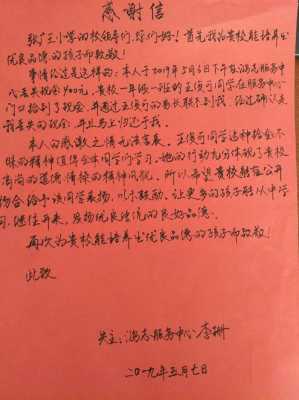 感谢信
张广王小学的校领导们，你们好！首先我为贵校能培养出
优良品德的孩子而致敬！
事情经过是这样的：本人于2019年5月6日下午在鸿志服务中
心丢失现金900元，贵校一年级一班的王俊可同学在服务中心
门口拾到了现金，并通过王俊可的家长联系到我，经过确认是
我丢失的现金，并且马上归还于我。
本人的感激之情无法言表，王俊可同学这种拾金不
昧的精神值得全体同学们学习，她的行动充分体现了贵校
高尚的道德情操的精神风貌，所以希望贵校能在公开
场合给予该同学表扬，以示鼓励，让更多的孩子能从中学
习，继往开来，发扬优良传统的良好品德。
再次为贵校能培养出优良品德的孩子而致敬！
此致
失主：鸿志服务中心 李珊
二〇一九年五月七日